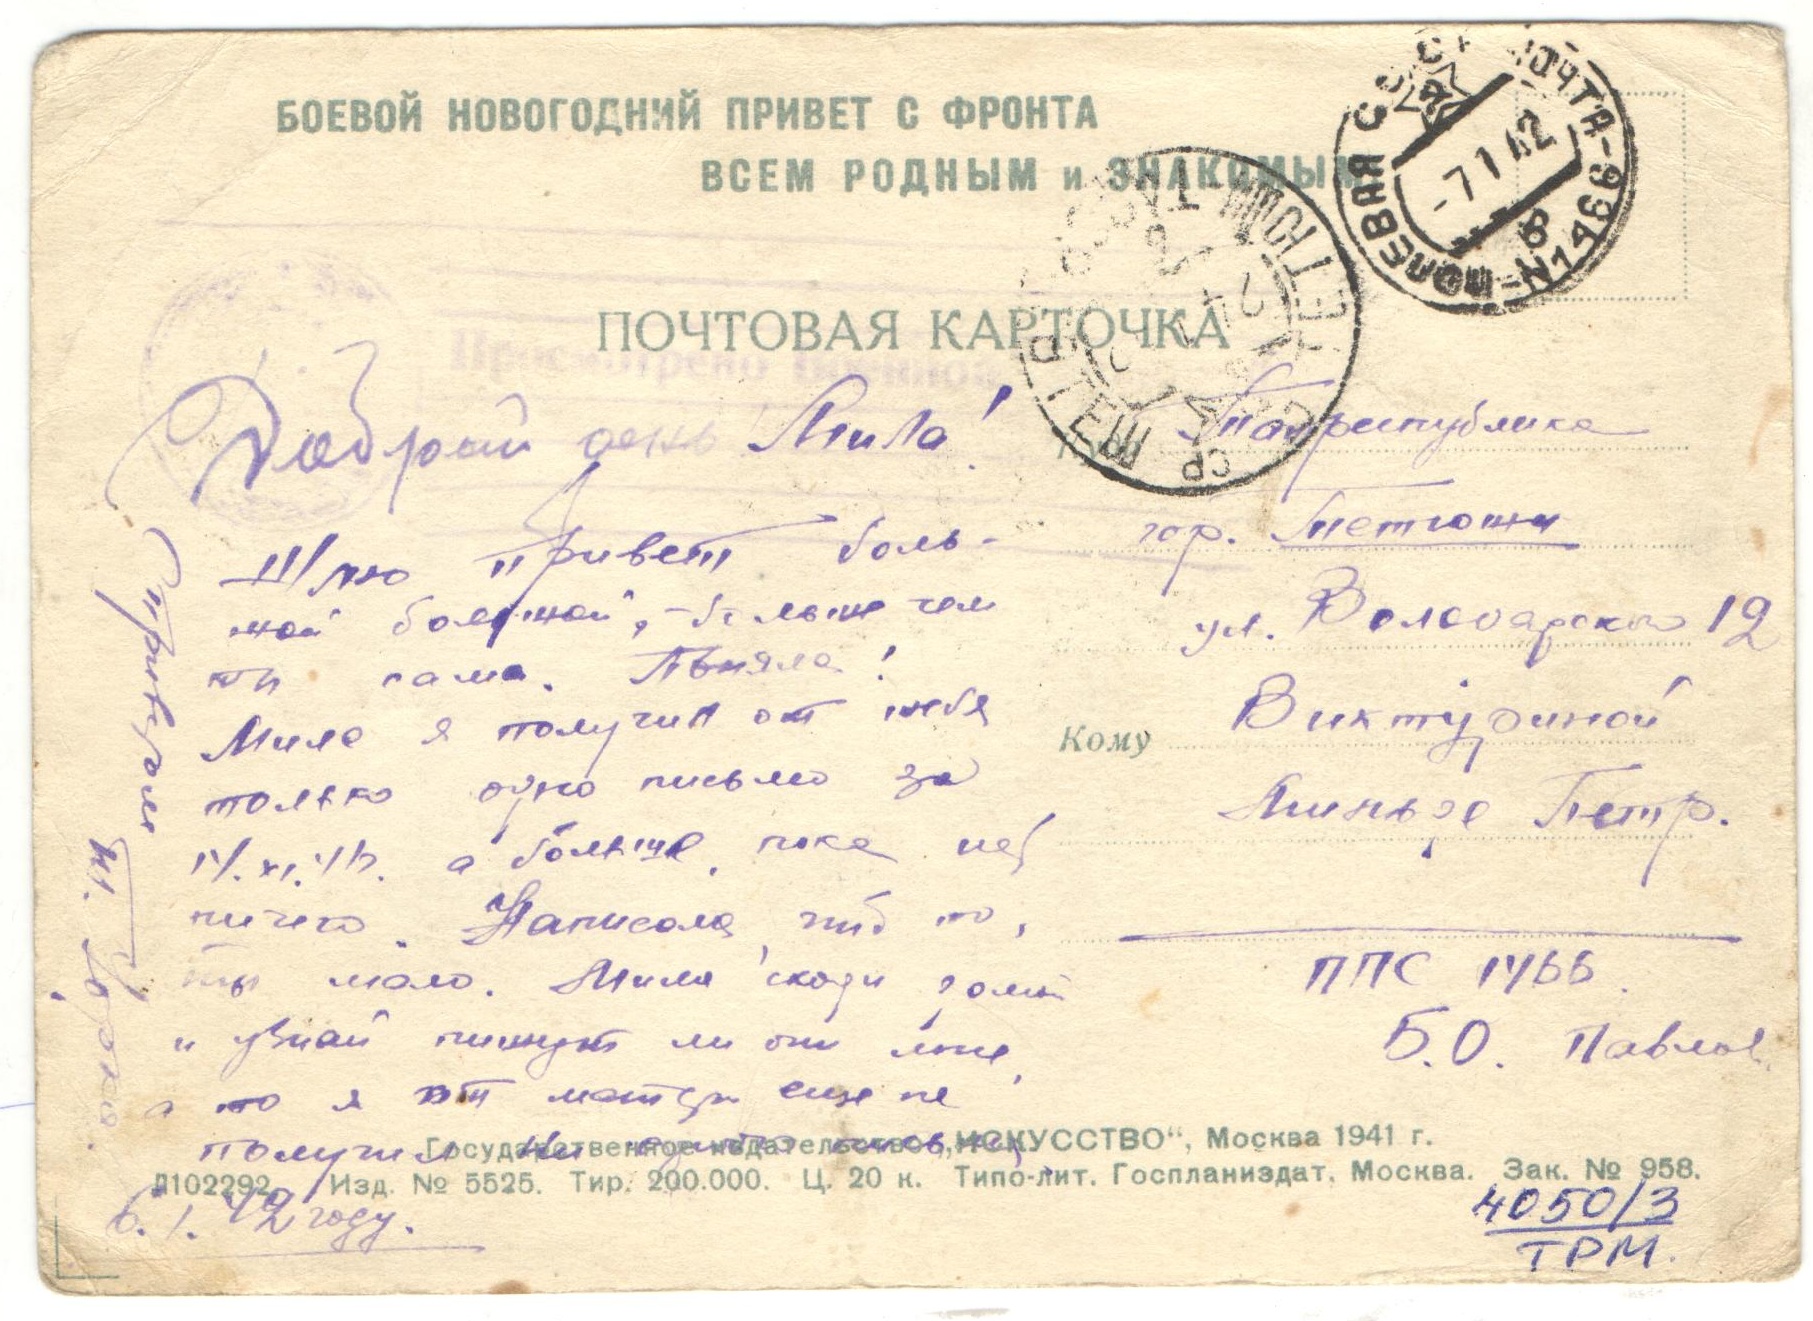 БОЕВОЙ НОВОГОДНИЙ ПРИВЕТ С ФРОНТА
ВСЕМ РОДНЫМ и ЗНАКОМЫМ
ПОЛЕВАЯ ПОЧТА
-7 1 42
ПОЧТОВАЯ КАРТОЧКА
Просмотрено Военной
Добрый день Мила!
Шлю привет боль-
шой большой, - больше чем
ты сама. Поняла!
Мила я получил от тебя
только одно письмо за
а больше, пока нет
ничего. Написала, что то,
ты мало. Мила сходи
и узнай пишут ли они мне,
а то я от матери еще не
получил ни
6. 1. 42 году.
С приветом
Куда Татреспублика
гор. Тетюши
ул. Володарского 12
Кому
Петр.
ППС 1466.
Б.О. Павлов
Государственное издательство „ИСКУССТВО“, Москва 1941 г.
Л102292. Изд. № 5525. Тир. 200.000. Ц. 20 к. Типо-лит. Госпланиздат, Москва. Зак. № 958.
4050/3
ТРМ.